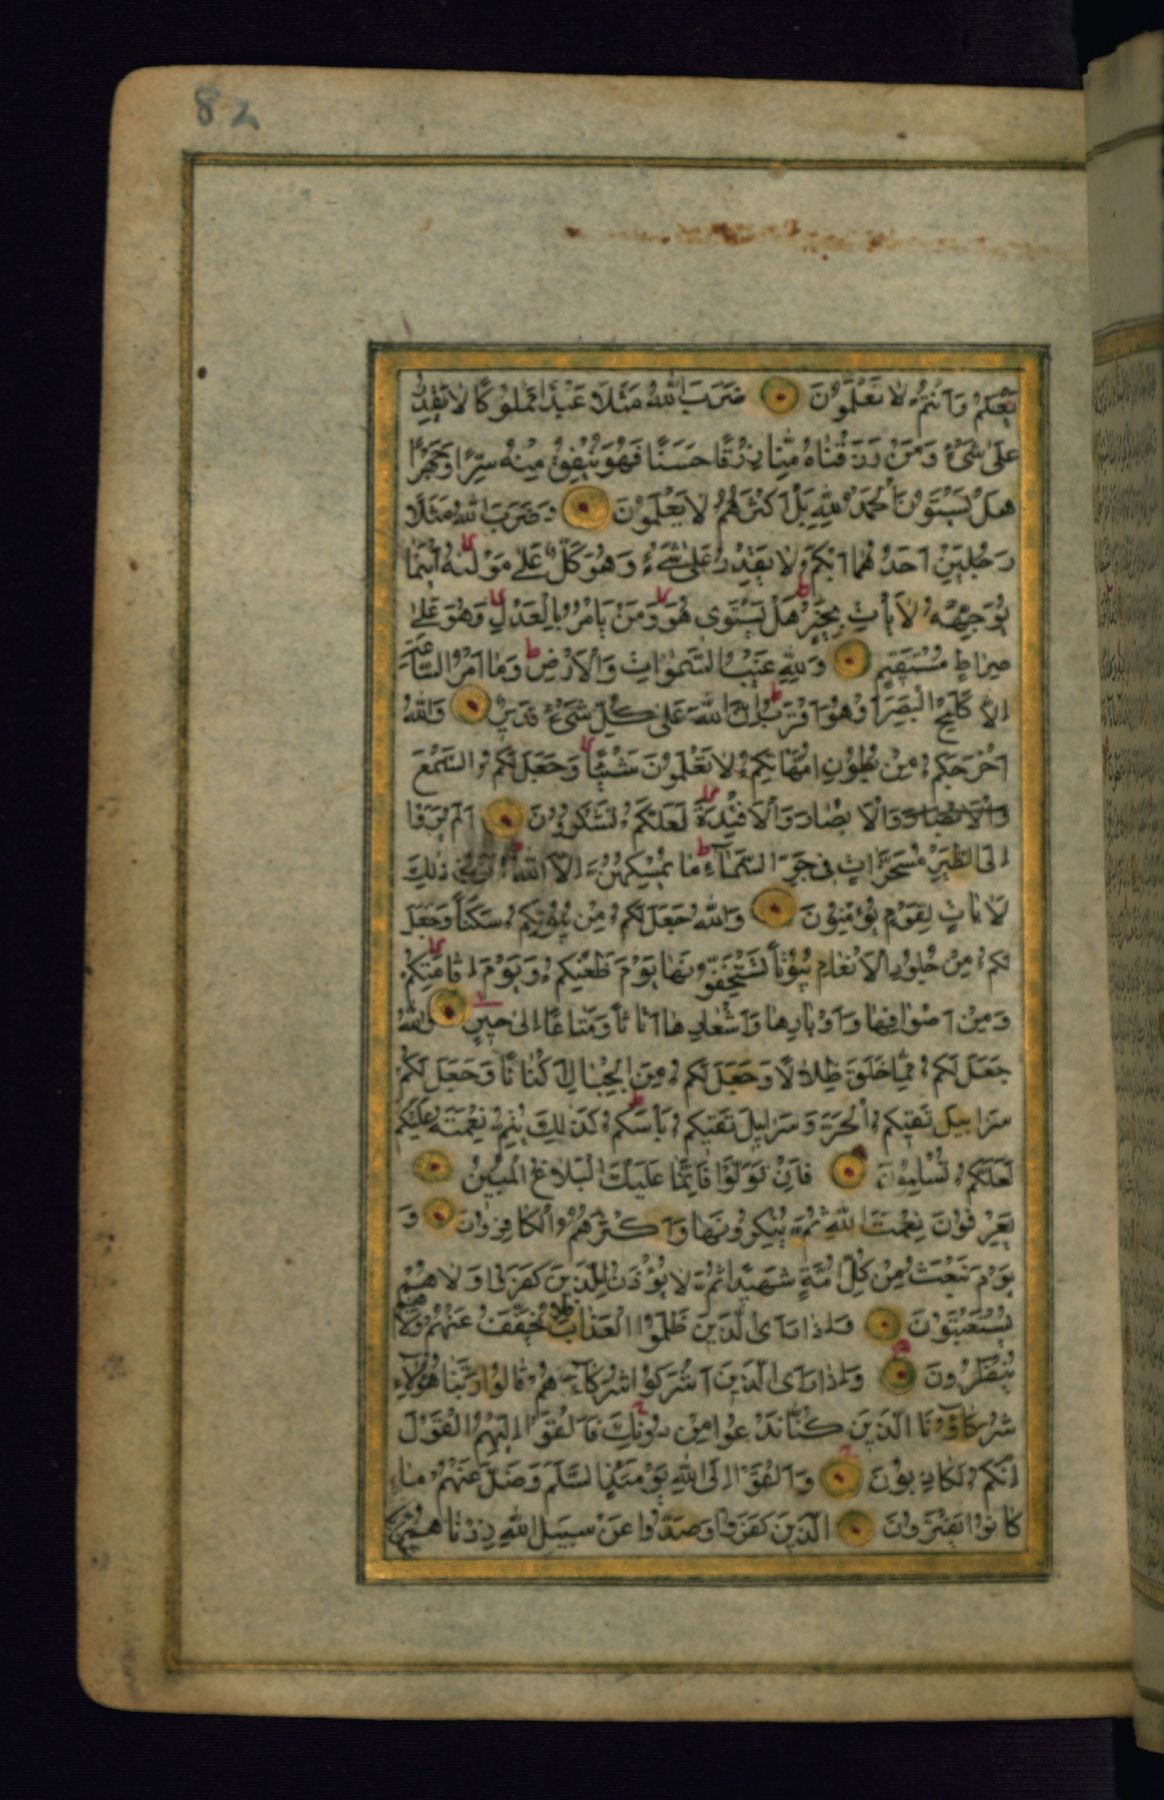 82
يَعْلَمُ وَاَنْتُمْ لَا تَعْلَمُوْنَ ضَرَبَ اللهُ مَثَلًا عَبْدًا مَمْلُوْكًا لَا يَقْدِرُ
عَلٰى شَيْءٍ وَمَنْ رَزَقْنَاهُ مِنَّا رِزْقًا حَسَنًا فَهُوَ يُنْفِقُ مِنْهُ سِرًّا وَجَهْرًا
هَلْ يَسْتَوُنَ اَلْحَمْدُ لِلهِ بَلْ اَكْثَرُهُمْ لَا يَعْلَمُوْنَ وَضَرَبَ اللهُ مَثَلًا
رَجُلَيْنِ اَحَدُهُمَا اَبْكَمُ لَا يَقْدِرُ عَلٰى شَيْءٍ وَهُوَ كَلٌّ عَلٰى مَوْلٰيهُ اَيْنَمَا
يُوَجِّهْهُ لَا يَأْتِ بِخَيْرٍ هَلْ يَسْتَوِى هُوَ وَمَنْ يَأْمُرُ بِالْعَدْلِ وَهُوَ عَلٰى
صِرَاطٍ مُسْتَقِيْمٍ وَلِلهِ غَيْبُ السَّمٰوَاتِ وَالْاَرْضِ وَمَا اَمْرُ السَّاعَةِ
اِلَّا كَلَمْحِ الْبَصَرِ اَوْ هُوَ اَقْرَبُ اِنَّ اللهَ عَلٰى كُلِّ شَيْءٍ قَدِيْرٌ وَاللهُ
اَخْرَجَكُمْ مِنْ بُطُوْنِ اُمَّهَاتِكُمْ لَا تَعْلَمُوْنَ شَيْئًا وَجَعَلَ لَكُمُ السَّمْعَ
وَالْاَبْصَارَ وَالْاَبْصَارَ وَالْاَفْئِدَةَ لَعَلَّكُمْ تَشْكُرُوْنَ اَلَمْ يَرَوْا
اِلَى الطَّيْرِ مُسَخَّرَاتٍ فِى جَوِّ السَّمَآءِ مَا يُمْسِكُهُنَّ اِلَّا اللهُ اِنَّ فِى ذٰلِكَ
لَاٰيَاتٍ لِقَوْمٍ يُؤْمِنُوْنَ وَاللهُ جَعَلَ لَكُمْ مِنْ بُيُوْتِكُمْ سَكَنًا وَجَعَلَ
لَكُمْ مِنْ جُلُوْدِ الْاَنْعَامِ بُيُوْتًا تَسْتَخِفُّوْنَهَا يَوْمَ ظَعْنِكُمْ وَيَوْمَ اِقَامَتِكُمْ
وَمِنْ اَصْوَافِهَا وَاَوْبَارِهَا وَاَشْعَارِهَا اَثَاثًا وَمَتَاعًا اِلٰى حِيْنٍ وَاللهُ
جَعَلَ لَكُمْ مِمَّا خَلَقَ ظِلَالًا وَجَعَلَ لَكُمْ مِنَ الْجِبَالِ اَكْنَانًا وَجَعَلَ لَكُمْ
سَرَابِيْلَ تَقِيْكُمُ الْحَرَّ وَسَرَابِيْلَ تَقِيْكُمْ بَأْسَكُمْ كَذٰلِكَ يُتِمُّ نِعْمَتَهُ عَلَيْكُمْ
لَعَلَّكُمْ تُسْلِمُوْنَ فَاِنْ تَوَلَّوْا فَاِنَّمَا عَلَيْكَ الْبَلَاغُ الْمُبِيْنُ
يَعْرِفُوْنَ نِعْمَتَ اللهِ ثُمَّ يُنْكِرُوْنَهَا وَاَكْثَرُهُمُ الْكَافِرُوْنَ وَ
يَوْمَ نَبْعَثُ مِنْ كُلِّ اُمَّةٍ شَهِيْدًا ثُمَّ لَا يُؤْذَنُ لِلَّذِيْنَ كَفَرُوْا وَلَا هُمْ
يُسْتَعْتَبُوْنَ وَاِذَا رَاَى الَّذِيْنَ ظَلَمُوا الْعَذَابَ فَلَا يُخَفَّفُ عَنْهُمْ وَلَا هُمْ
يُنْظَرُوْنَ وَاِذَا رَاَى الَّذِيْنَ اَشْرَكُوْا شُرَكَآءَهُمْ قَالُوْا رَبَّنَا هٰؤُلَآءِ
شُرَكَاؤُنَا الَّذِيْنَ كُنَّا نَدْعُوْا مِنْ دُوْنِكَ فَاَلْقَوْا اِلَيْهِمُ الْقَوْلَ
اِنَّكُمْ لَكَاذِبُوْنَ وَاَلْقَوْا اِلَى اللهِ يَوْمَئِذٍ السَّلَمَ وَضَلَّ عَنْهُمْ مَا
كَانُوْا يَفْتَرُوْنَ اَلَّذِيْنَ كَفَرُوْا وَصَدُّوْا عَنْ سَبِيْلِ اللهِ زِدْنَاهُمْ